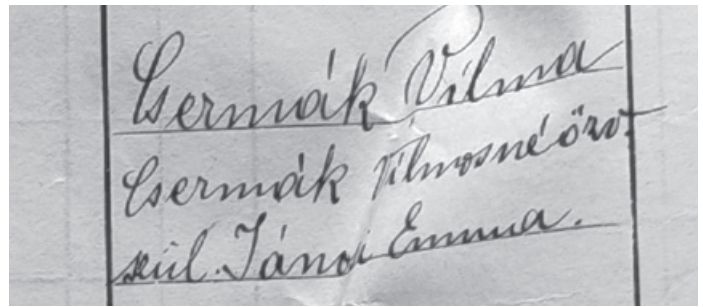 Csermák Vilma
Csermák Vilmosné özv.
szül. Jánosi Emma.